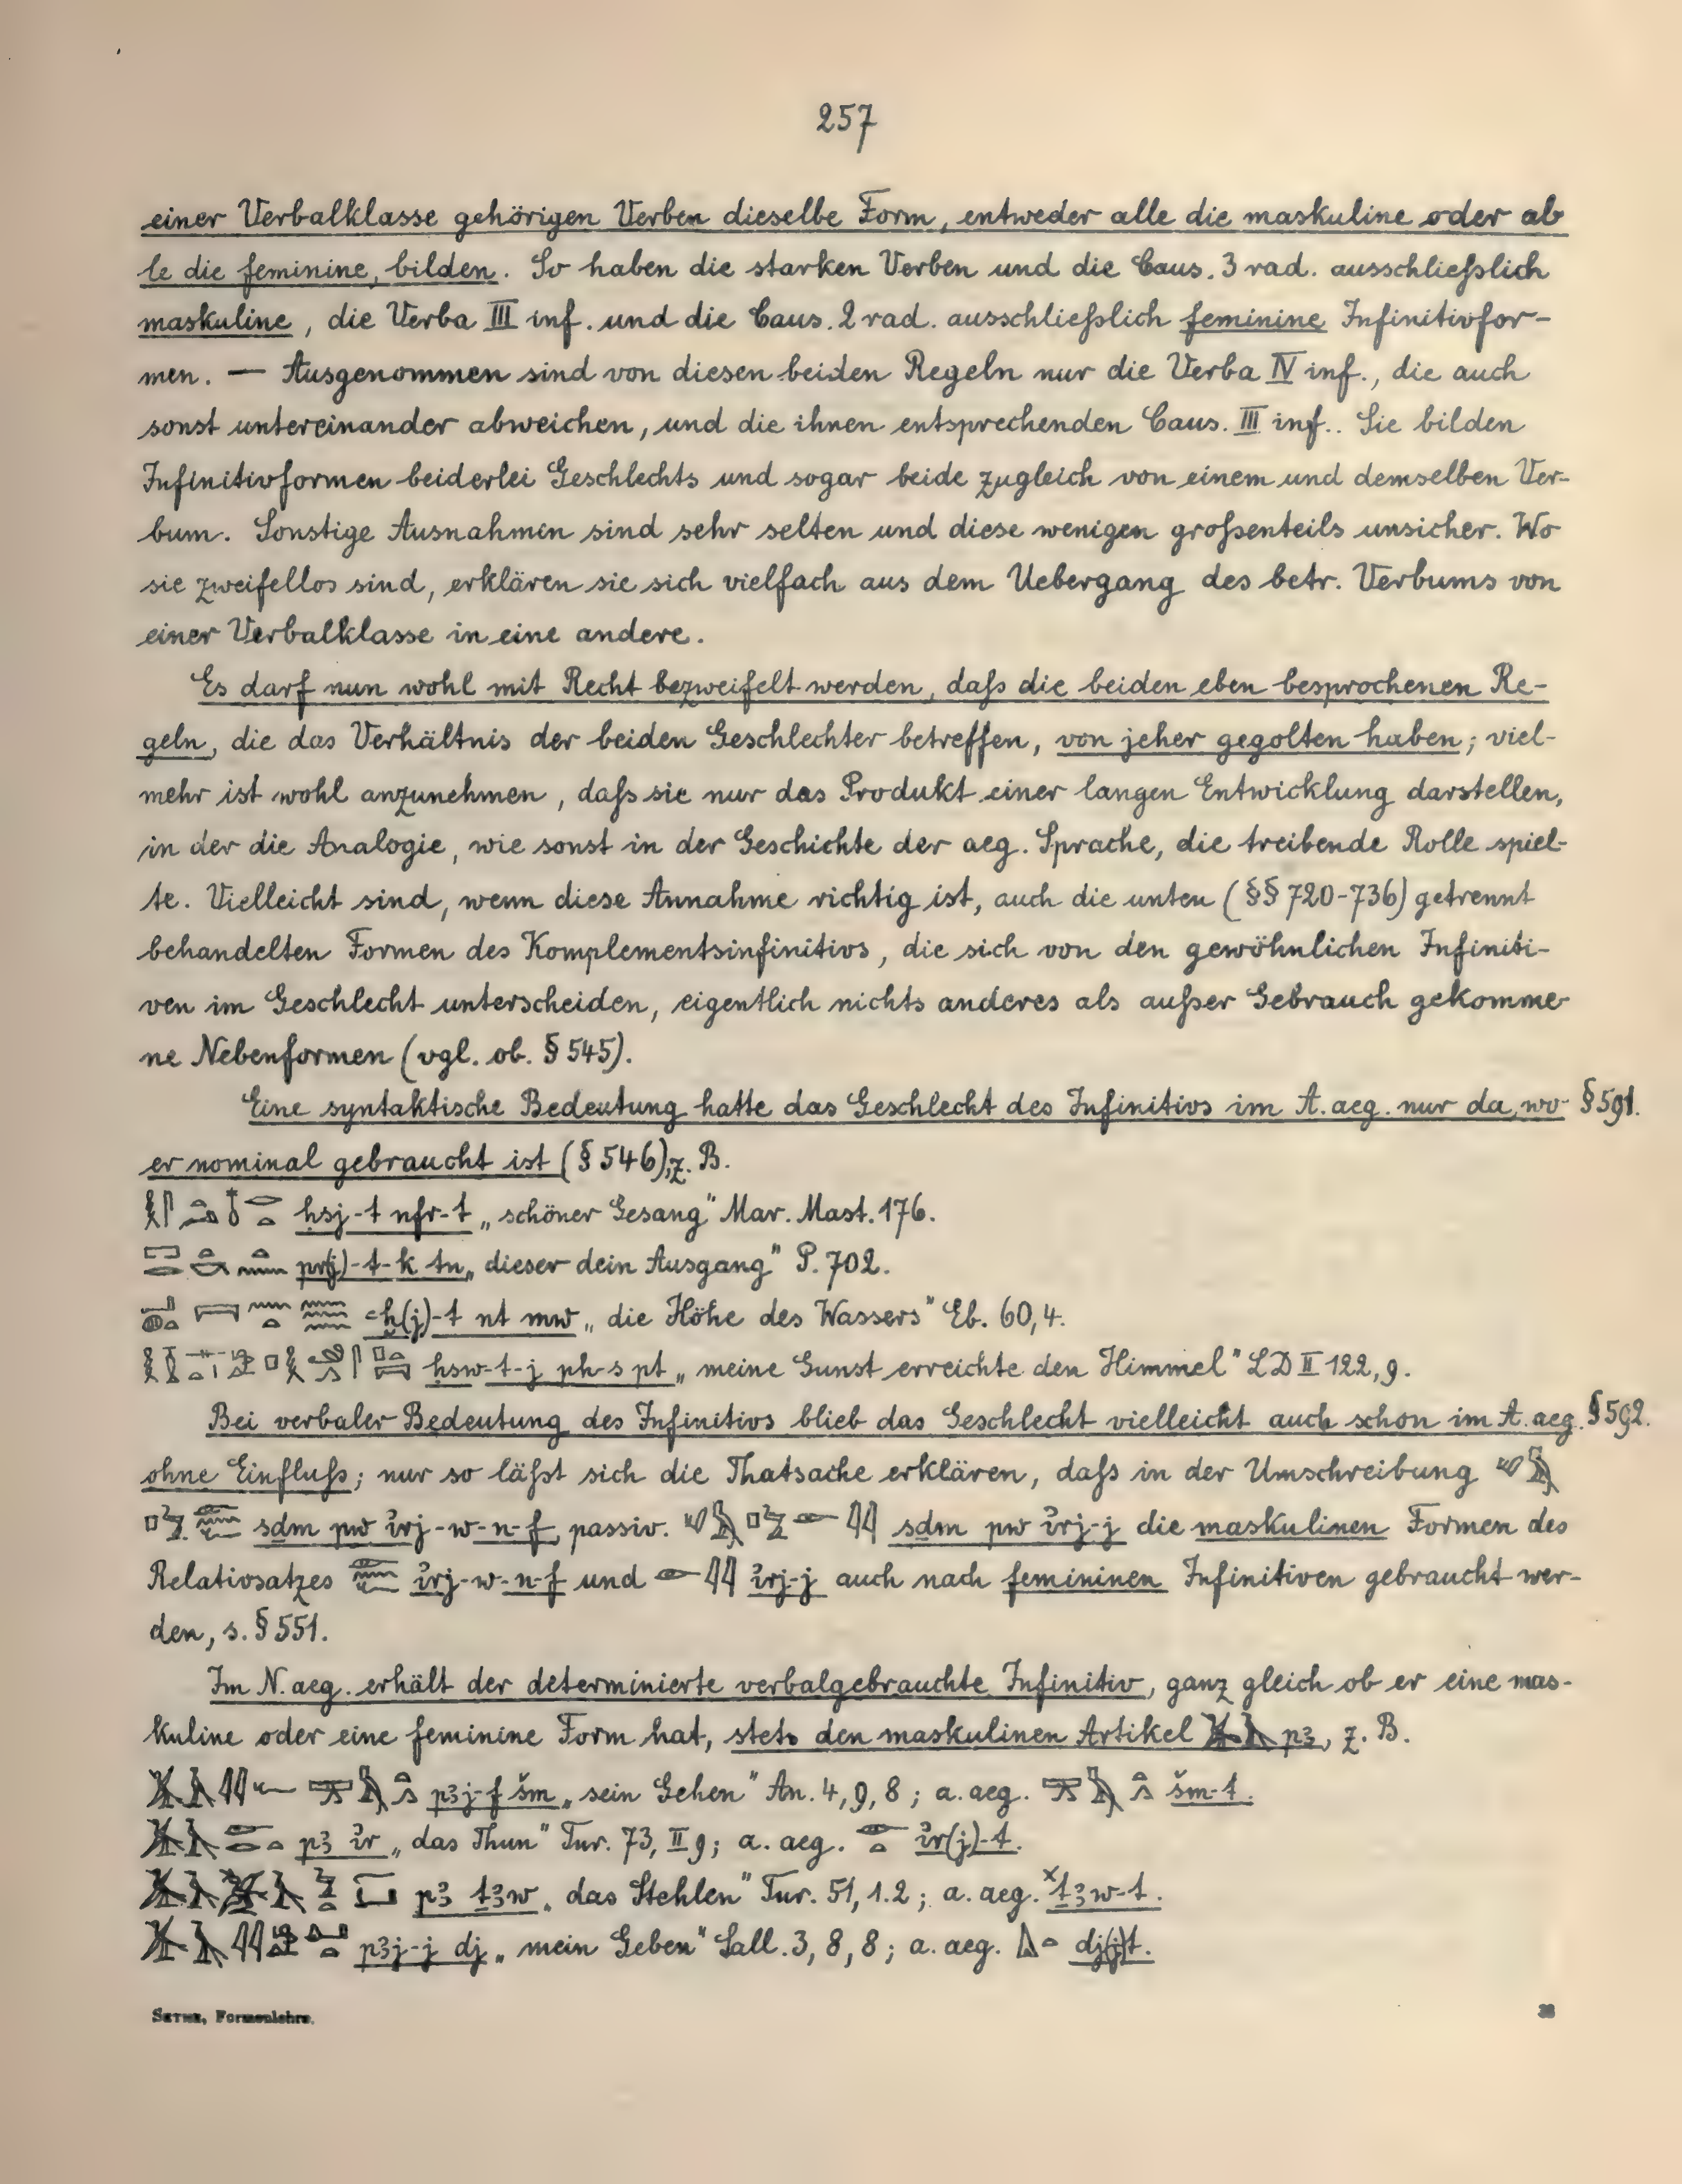 257
einer Verbalklasse gehörigen Verben dieselbe Form, entweder alle die maskuline oder al-
le die feminine, bilden. So haben die starken Verben und die Caus. 3 rad. ausschließlich
maskuline, die Verba III inf. und die Caus. 2 rad. ausschließlich feminine Infinitivfor-
men. — Ausgenommen sind von diesen beiden Regeln nur die Verba IV inf., die auch
sonst untereinander abweichen, und die ihnen entsprechenden Caus. III inf.. Sie bilden
Infinitivformen beiderlei Geschlechts und sogar beide zugleich von einem und demselben Ver-
bum. Sonstige Ausnahmen sind sehr selten und diese wenigen großenteils unsicher. Wo
sie zweifellos sind, erklären sie sich vielfach aus dem Uebergang des betr. Verbums von
einer Verbalklasse in eine andere.
Es darf nun wohl mit Recht bezweifelt werden, daß die beiden eben besprochenen Re-
geln, die das Verhältnis der beiden Geschlechter betreffen, von jeher gegolten haben; viel-
mehr ist wohl anzunehmen, daß sie nur das Produkt einer langen Entwicklung darstellen,
in der die Analogie, wie sonst in der Geschichte der aeg. Sprache, die treibende Rolle spiel-
te. Vielleicht sind, wenn diese Annahme richtig ist, auch die unten (§§ 720-736) getrennt
behandelten Formen des Komplementsinfinitivs, die sich von den gewöhnlichen Infiniti-
ven im Geschlecht unterscheiden, eigentlich nichts anderes als außer Gebrauch gekomme-
ne Nebenformen (vgl. ob. § 545).
Eine syntaktische Bedeutung hatte das Geschlecht des Infinitivs im A. aeg. nur da, wo § 591.
er nominal gebraucht ist (§ 546), z. B.
ḥsj-t nfr-t „schöner Gesang" Mar. Mast. 176.
pr(j)-t-k tn „dieser dein Ausgang" P. 702.
ꜥḫ(j)-t nt mw „die Höhe des Wassers" Eb. 60,4.
ḥsw-t-j pḥ-s pt „meine Gunst erreichte den Himmel" LD II 122, 9.
Bei verbaler Bedeutung des Infinitivs blieb das Geschlecht vielleicht auch schon im A. aeg. § 592.
ohne Einfluß; nur so läßt sich die Thatsache erklären, daß in der Umschreibung
sdm pw ỉrj-w-n-f, passiv. sdm pw ỉrj-j die maskulinen Formen des
Relativsatzes ỉrj-w-n-f und ỉrj-j auch nach femininen Infinitiven gebraucht wer-
den, s. § 551.
Im N. aeg. erhält der determinierte verbalgebrauchte Infinitiv, ganz gleich ob er eine mas-
kuline oder eine feminine Form hat, stets den maskulinen Artikel pꜣ, z. B.
pꜣj-f šm „sein Gehen" An. 4, 9, 8; a. aeg. šm-t.
pꜣ ỉr „das Thun" Tur. 73, II 9; a. aeg. ỉr(j)-t.
pꜣ ṯꜣw „das Stehlen" Tur. 51, 1.2; a. aeg. ˣṯꜣw-t.
pꜣj-j dj „mein Geben" Sall. 3, 8, 8; a. aeg. dj(j)t.
Sethe, Formenlehre.